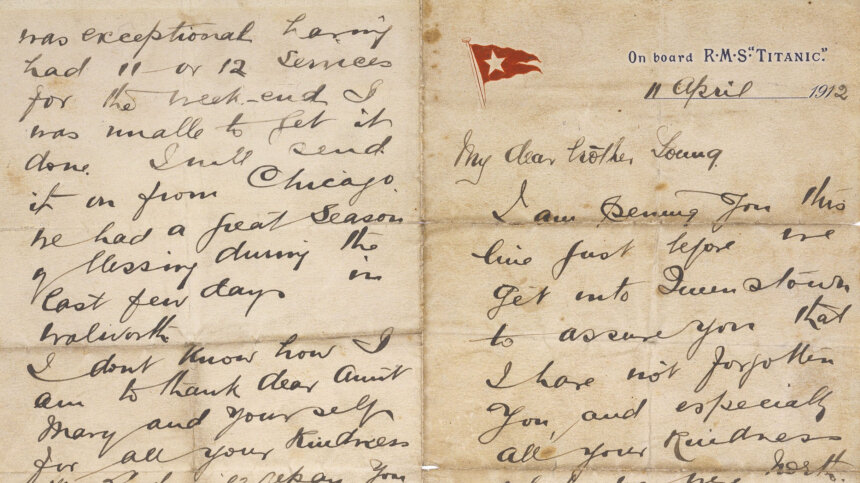 On board R·M·S·"TITANIC."
11 April 1912
My dear brother Young
I am penning you this
line just before we
get into Queenstown
to assure you that
I have not forgotten
you, and especially
all your kindness
North
was exceptional having
had 11 or 12 services
for the week-end I
was unable to get it
done. I will send
it on from Chicago.
We had a great season
of blessing during the
last few days in
Walworth
I dont know how I
am to thank dear Aunt
Mary and yourself
for all your kindness
repay you